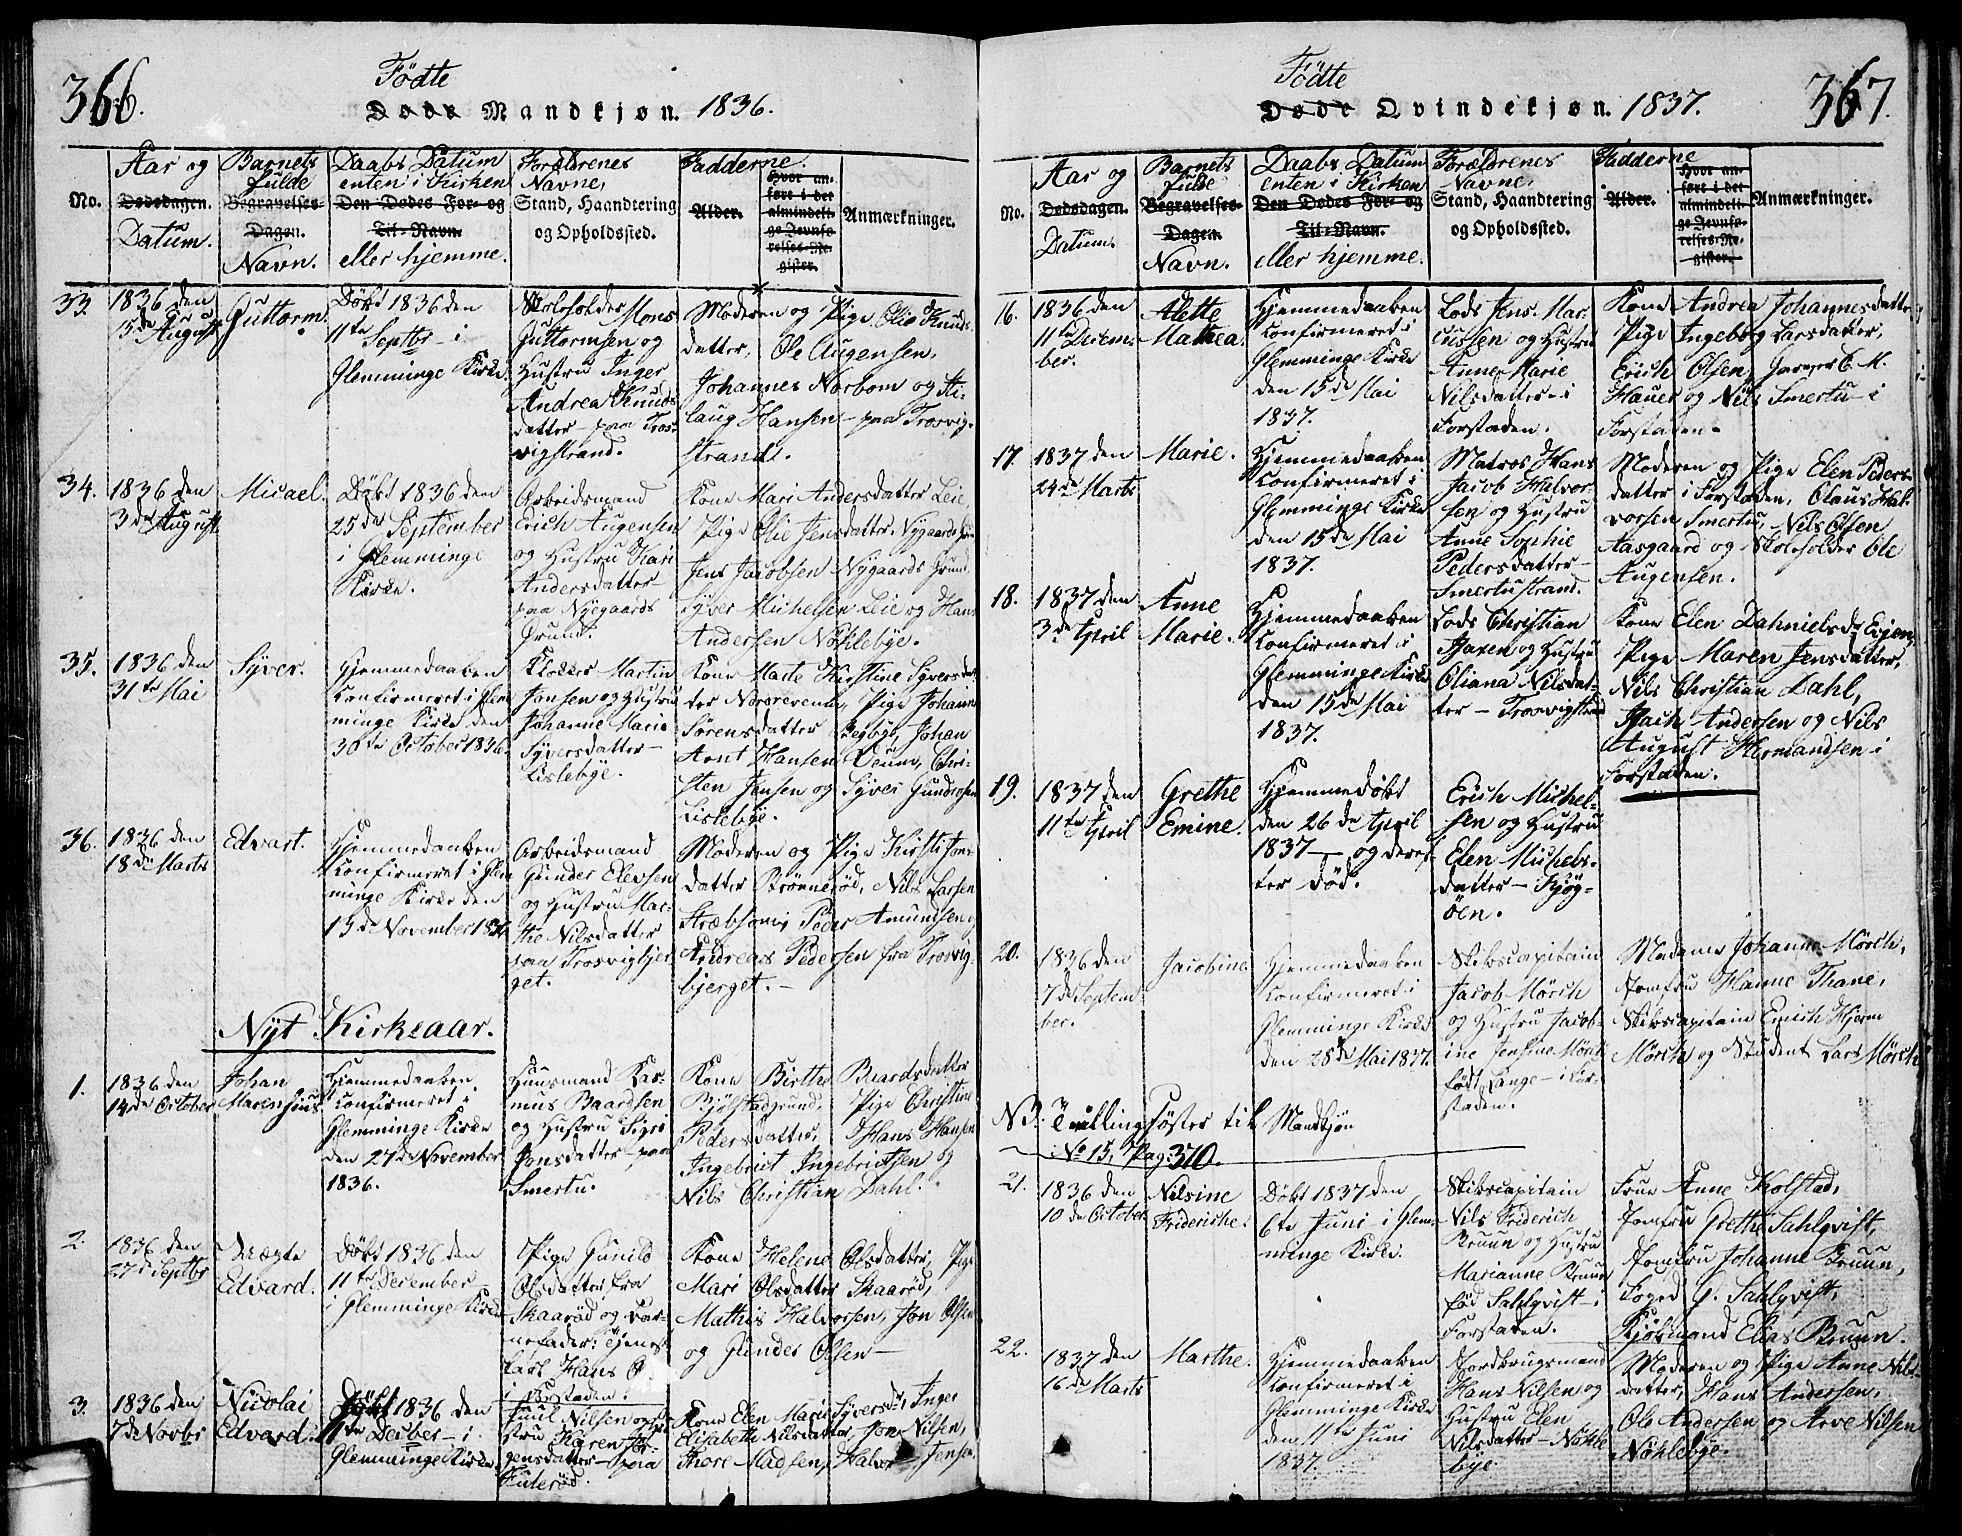 366.
Födte
Døde Mandkjøn. 1836.
No.
Aar og
Dødsdagen.
Datum.
Barnets
fulde
Begravelses-
Dagen.
Navn.
Daabs Datum
enten i Kirken
Den Dødes For- og
Til-Navn.
eller hjemme.
Forældrenes
Navne,
Stand, Haandtering
og Opholdssted.
Fadderne.
Alder.
Hvor an-
ført i det
almindeli-
ge Jevnfø-
relses-Re-
gister.
Anmærkninger.
33.
1836 den
15de August
Guttorm.
Döbt 1836 den
11te Septbr - i
Glemminge Kirke.
Skoleholder Mons
Guttormsen og
Hustru Inger
Andrea Knuds
datter - paa Tros-
vigstrand.
Moderen og Pige Olia Knuds
datter, Ole Augensen,
Johannes Norbom og As-
laug Hansen - paa Trosvig-
strand.
34.
1836 den
3de August
Micael.
Döbt 1836 den
25de September
i Glemminge
Kirke.
Arbeidsmand
Erich Augensen
og Hustru Kari
Andersdatter -
paa Nyegaards
Grund.
Kone Mari Andersdatter Leie,
Pige Olie Jensdatter Nygaards
Jens Jacobsen Nygaards Grund
Syver Michelsen Leie og Hans
Andersen Nöklebye.
35.
1836 den
31te Mai
Syver.
Hjemmedaaben
Confirmeret i Glem
minge Kirke den
30te October 1836.
Klokker Martin
Jensen og Hustru
Johanne Marie
Syversdatter -
Lislebye.
Kone Marte Kirstine Syversdat
ter Nordrevente, Pige Johanne
Sörensdatter Begbye, Johan
Arnt Hansen Deum, Chri-
sten Jensen og Syver Gundrosen
Lislebye.
36.
1836 den
18de Marts
Edvart.
Hjemmedaaben
Confirmeret i Glem
minge Kirke den
13de November 1836
Arbeidsmand
Gunder Elevsen
og Hustru Mar-
the Nilsdatter
paa Trosvigbjer
get.
Moderen og Pige Kirsti Jons
datter Brönneröd, Nils Larsen
Peder Amundsen og
Andreas Pedersen fra Trosvig-
bjerget. -
Nyt Kirkeaar.
1.
1836 den
14de October
Johan
Marensius
Hjemmedaaben
Confirmeret i
Glemminge Kirke
den 27de November
1836.
Huusmand Ras-
mus Baardsen
og Hustru Sigri
Jonsdatter - paa
Smertu.
Kone Birthe Baardsdatter
Bjölstadgrund, Pige Christine
Pedersdatter, Hans Hansen
Ingebriet Ingebrietsen og
Nils Christian Dahl.
2.
1836 den
27de Septbr
Uægte
Edvard.
Döbt 1836 den
11te December -
i Glemminge Kirke
Pige Gunild
Olsdatter fra
Skaaröd og Bar-
nefader: Tjenest
karl Hans O
i Forstaden.
Kone Helene Olsdatter, Pige
Mari Olsdatter Skaaröd,
Mathis Halvorsen, Jon Olsen
og Gunder Olsen -
3.
1836 den
7de Novbr
Nicolai
Edvard.
Döbt 1836 den
11te Decber - i
Glemminge Kirke.
Juul Nilsen og Hu
stru Karen Jör-
gensdatter - paa
Fuleröd.
Kone Elen Marie Syversdr, Inger
Elisabeth Nilsdatter, Jon Nilsen,
Thore Madsen, Halvor Jensen
367.
Födte
Døde Qvindekjøn. 1837.
No.
Aar og
Dødsdagen.
Datum.
Barnets
fulde
Begravelses-
Dagen.
Navn.
Daabs Datum
enten i Kirken
Den Dødes For- og
Til-Navn.
eller hjemme.
Forældrenes
Navne.
Stand, Haandtering
og Opholdssted.
Fadderne
Alder.
Hvor an-
ført i det
almindeli-
ge Jevnfø-
relses-Re-
gister.
Anmærkninger.
16.
1836 den
11te Decem-
ber.
Alette
Mathea.
Hjemmedaaben
Confirmeret i
Glemminge Kirke
den 15de Mai
1837.
Lods Jens Mar-
cussen og Hustru
Anne Marie
Nilsdatter - i
Forstaden.
Kone Andrea Johannesdatter
Pige Ingeborg Larsdatter,
Erich Olsen, Garver C. M.
Hauer og Nils Smertu - i
Forstaden.
17.
1837 den
24de Marts
Marie.
Hjemmedaaben
Confirmeret i
Glemminge Kirke
den 15de Mai
1837.
Matros Hans
Jacob Halvor-
sen og Hustru
Anne Sophie
Pedersdatter -
Smertustrand.
Moderen og Pige Elen Peders-
datter i Forstaden, Claus Hal-
vorsen Smertu, Nils Olsen
Aasgaard og Skoleholder Ole
Augensen.
18.
1837 den
3de April
Anne
Marie.
Hjemmedaaben
Confirmeret i
Glemminge Kirke
den 15de Mai
1837.
Lods Christian
Haxen og Hustru
Oliana Nilsdat-
ter - Trosvigstrand
Kone Elen Dahnielsdr Evjen,
Pige Maren Jensdatter,
Nils Christian Dahl,
Isach Andersen og Nils
August Hermandsen i
Forstaden.
19.
1837 den
11te April
Grethe
Emine.
Hjemmedöbt
den 26de April
1837 - og deref-
ter död.
Erich Michel-
sen og Hustru
Elen Michels-
datter - Kjög-
öen.
20.
1836 den
7de Septem-
ber.
Jacobine
Hjemmedaaben
Confirmeret i
Glemminge Kirke
den 28de Mai 1837.
Skibscapitain
Jacob Mörch
og Hustru Jacob-
ine Jensine Mörch
födt Lange - i For-
staden.
Madame Johanne Mörch,
Jomfru Hanne Thane,
Skibscapitain Erich Hjerm
Mörch og Student Lars Mörch
NB. Tvillingsöster til Mandkjön
No 15, Pag: 370.
21.
1836 den
10de October
Nilsine
Frideriche.
Döbt 1837 den
6te Juni - i Glem-
minge Kirke.
Skibscapitain
Nils Friderich
Bruun og Hustru
Marianne Bruun
föd Sahlqvist - i
Forstaden.
Frue Anne Kolstad,
Jomfru Grethe Sahlqvist,
Jomfru Johanne Bruun,
Foged G. Sahlqvist,
Kjöbmand Elias Bruun.
22.
1837 den
16de Marts
Marthe.
Hjemmedaaben
Confirmeret i
Glemminge Kirke
den 11te Juni
1837.
Jordbrugsmand
Hans Nilsen og
Hustru Elen
Nilsdatter - Nökle
bye
Moderen og Pige Anne Nils-
datter, Hans Andersen,
Ole Andersen og Arve Nilsen
Nöklebye.